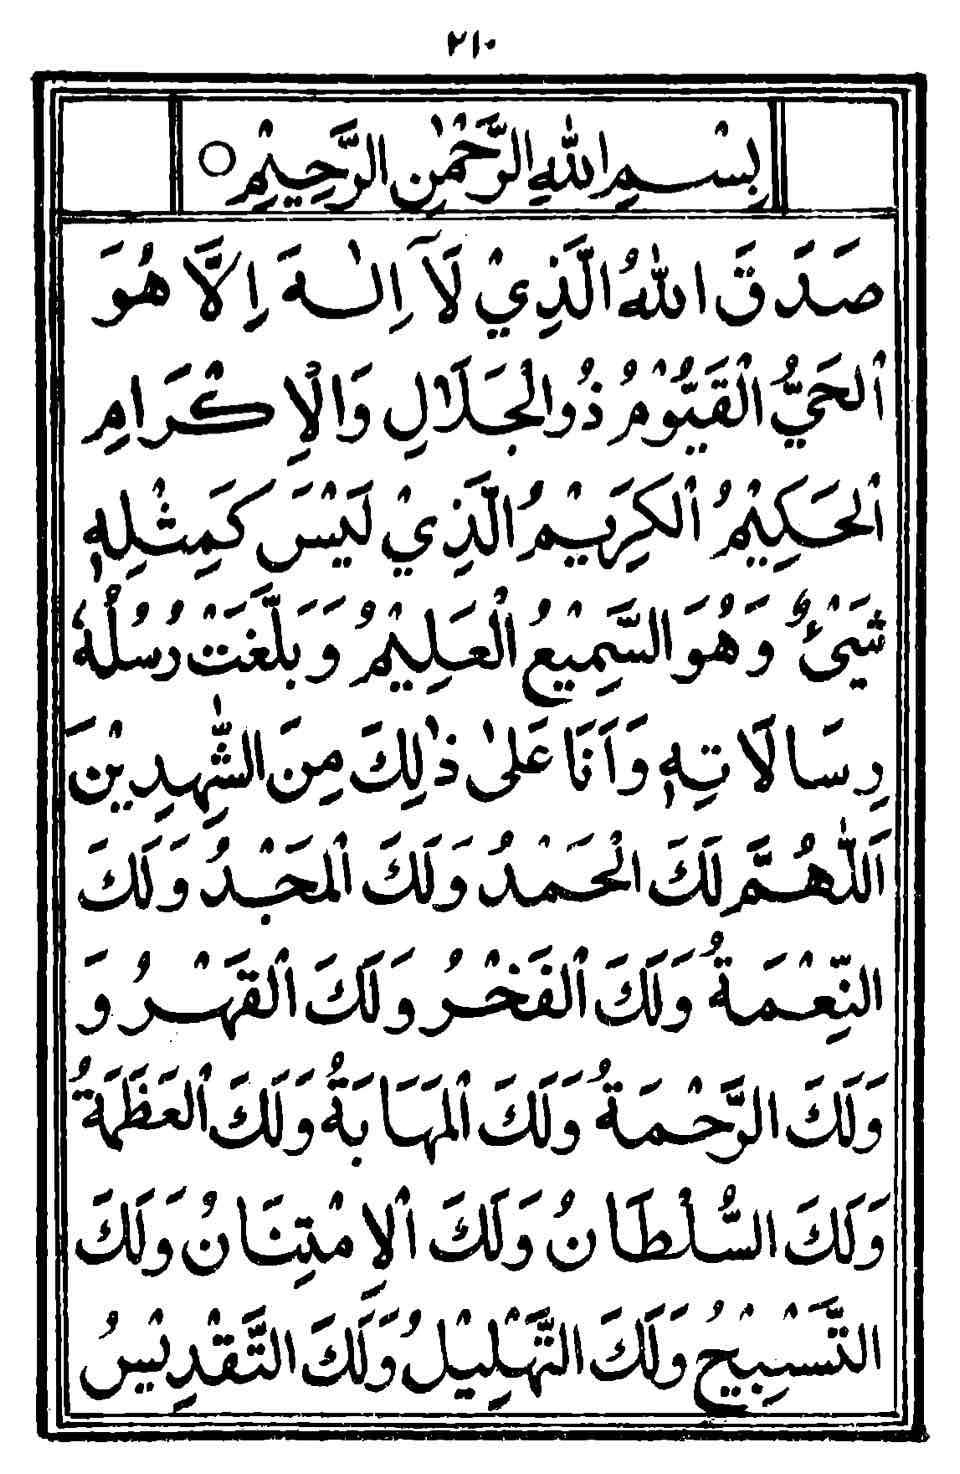 ٢١٠
بِسْمِ اللّٰهِ الرَّحْمٰنِ الرَّحِيْمِ ○
صَدَقَ اللّٰهُ الَّذِيْ لَآ اِلٰهَ اِلَّا هُوَ
اَلْحَيُّ الْقَيُّوْمُ ذُو الْجَلَالِ وَالْاِكْرَامِ
اَلْحَكِيْمُ اَلْكَرِيْمُ الَّذِيْ لَيْسَ كَمِثْلِهٖ
شَيْئٌ وَهُوَ السَّمِيْعُ الْعَلِيْمُ وَبَلَّغَتْ رُسُلُهٗ
رِسَالَاتِهٖ وَاَنَا عَلٰى ذٰلِكَ مِنَ الشّٰهِدِيْنَ
اَللّٰهُمَّ لَكَ الْحَمْدُ وَلَكَ الْمَجْدُ وَلَكَ
النِّعْمَةُ وَلَكَ الْفَخْرُ وَلَكَ الْقَهْرُ وَ
وَلَكَ الرَّحْمَةُ وَلَكَ الْمَهَابَةُ وَلَكَ الْعَظَمَةُ
وَلَكَ السُّلْطَانُ وَلَكَ الْاِمْتِنَانُ وَلَكَ
التَّسْبِيْحُ وَلَكَ التَّهْلِيْلُ وَلَكَ التَّقْدِيْسُ